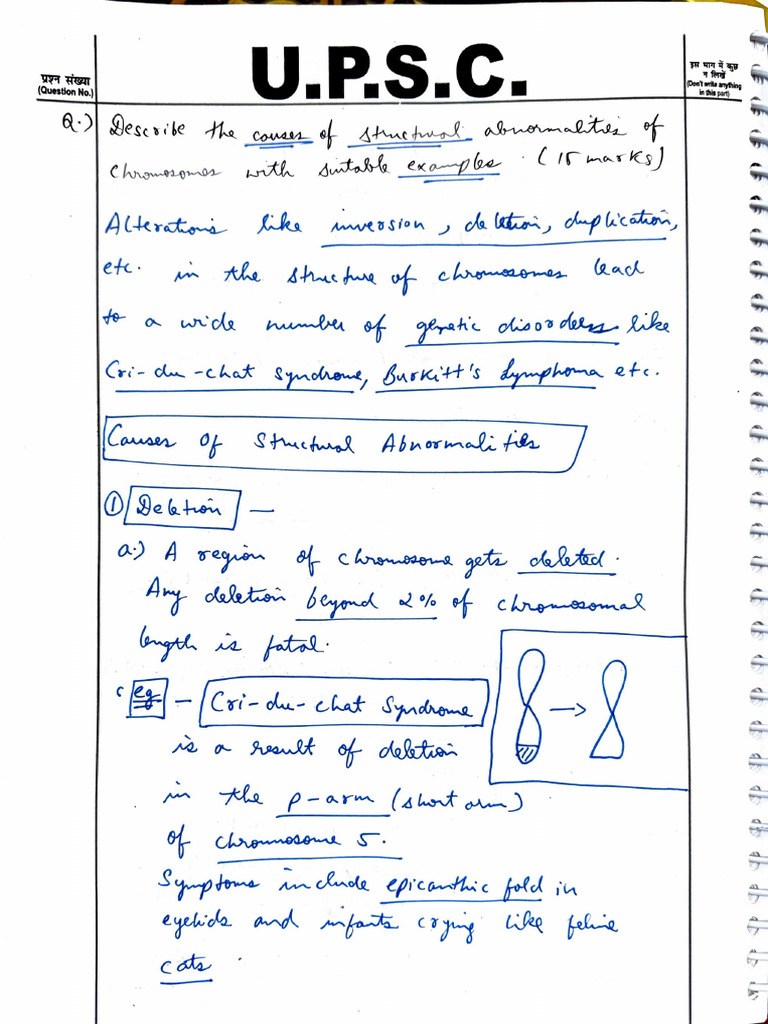 U.P.S.C.
प्रश्न संख्या
(Question No.)
इस भाग में कुछ
न लिखें
(Don't write anything
in this part)
Q.) Describe the causes of structural abnormalities of
chromosomes with suitable examples. (15 marks)
Alterations like inversion, deletion, duplication,
etc. in the structure of chromosomes lead
to a wide number of genetic disorders like
Cri-du-chat syndrome, Burkitt's Lymphoma etc.
Causes of Structural Abnormalities
① Deletion —
a.) A region of chromosome gets deleted.
Any deletion beyond 2% of chromosomal
length is fatal.
eg — Cri-du-chat Syndrome
is a result of deletion
in the p-arm (short arm)
of chromosome 5.
Symptoms include epicanthic fold in
eyelids and infants crying like feline
cats.